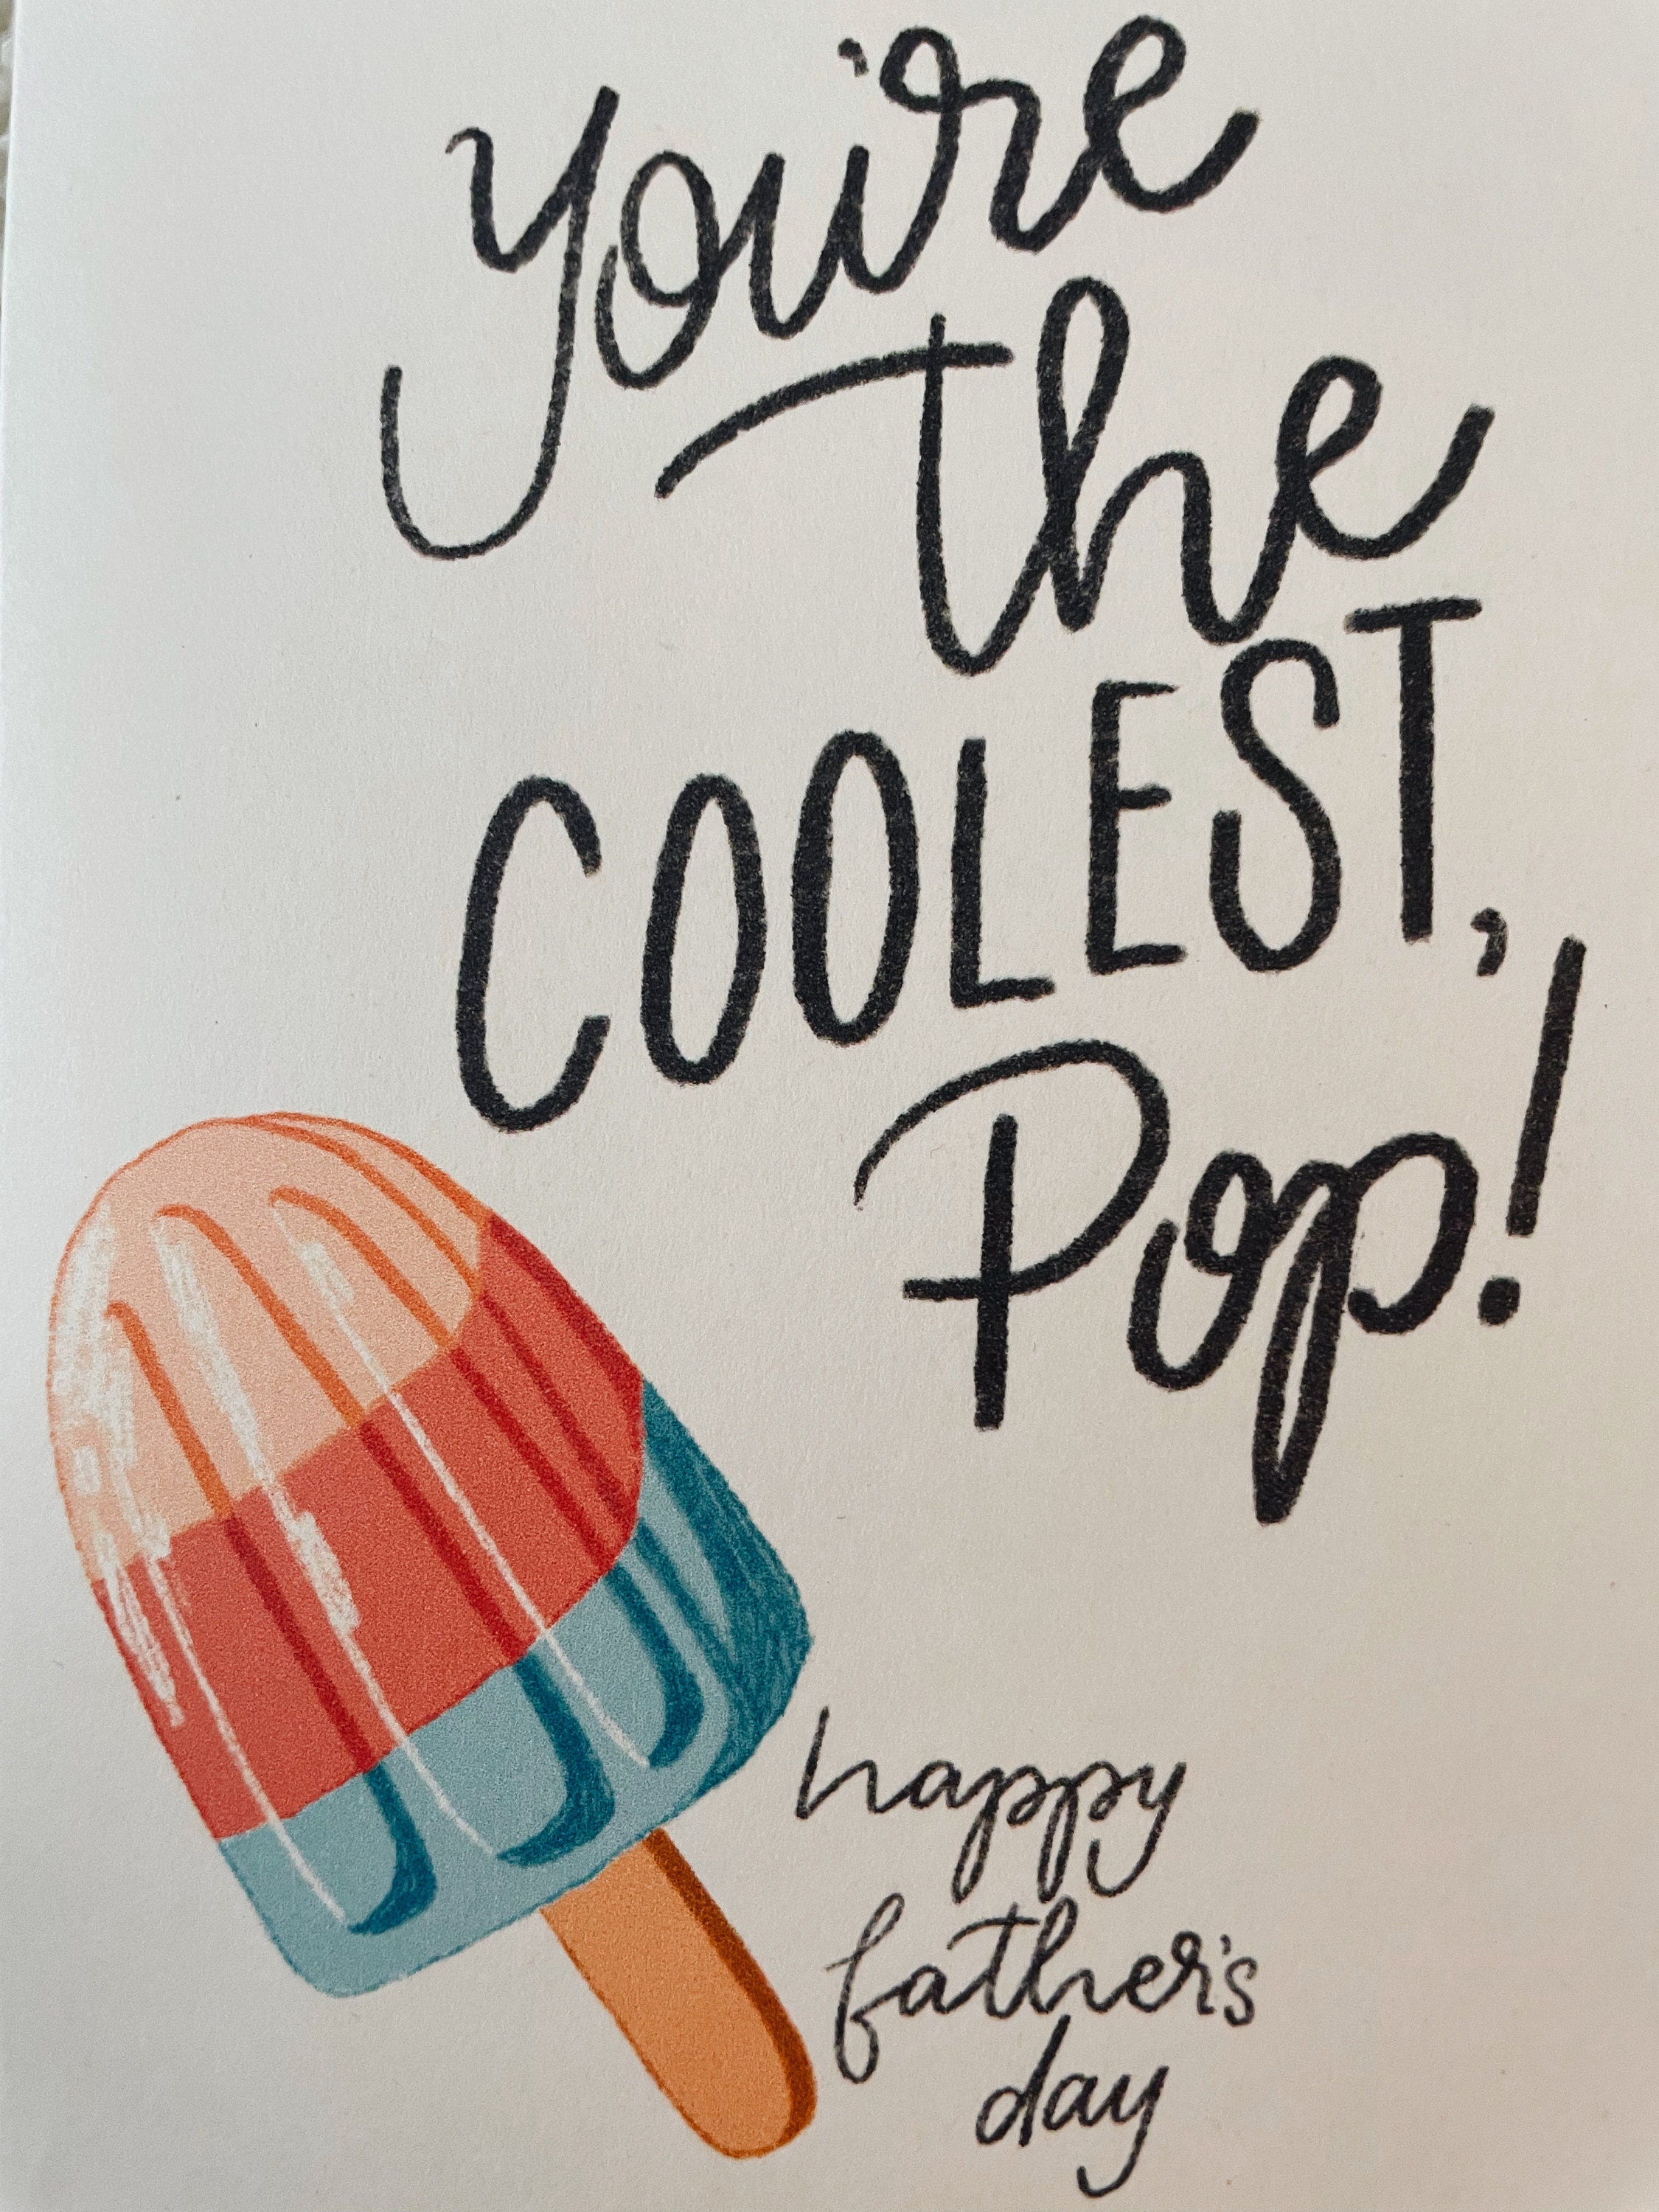 you're
the
COOLEST,
Pop!
happy
father's
day